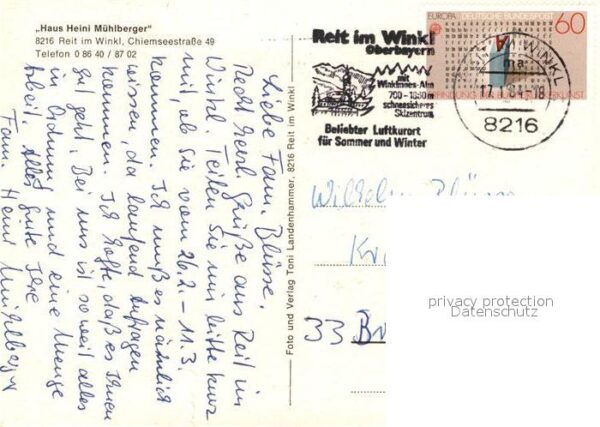 „Haus Heini Mühlberger"
8216 Reit im Winkl, Chiemseestraße 49
Telefon 0 86 40 / 87 02
Liebe Fam. Blüsse.
Recht herzl. Grüße aus Reit im
Winkl. Teilen Sie mir bitte kurz
mit, ob Sie vom 26.2. - 11.3.
kommen. Ich muß es nämlich
wissen, da laufend Anfragen
kommen. Ich hoffe, daß es Ihnen
gut geht. Bei uns ist soweit alles
in Ordnung und eine Menge
Arbeit. Alles gute Ihre
Fam. Heini Mühlberger
Foto und Verlag Toni Landenhammer, 8216 Reit im Winkl
Reit im Winkl
Oberbayern
mit
Winklmoos-Alm
700 - 1880 m
schneesicheres
Skizentrum
Beliebter Luftkurort
für Sommer und Winter
EUROPA DEUTSCHE BUNDESPOST 60
WINKL
ma
17.1.84-18
8216
Wilhelm Blüsse
33 B
privacy protection
Datenschutz